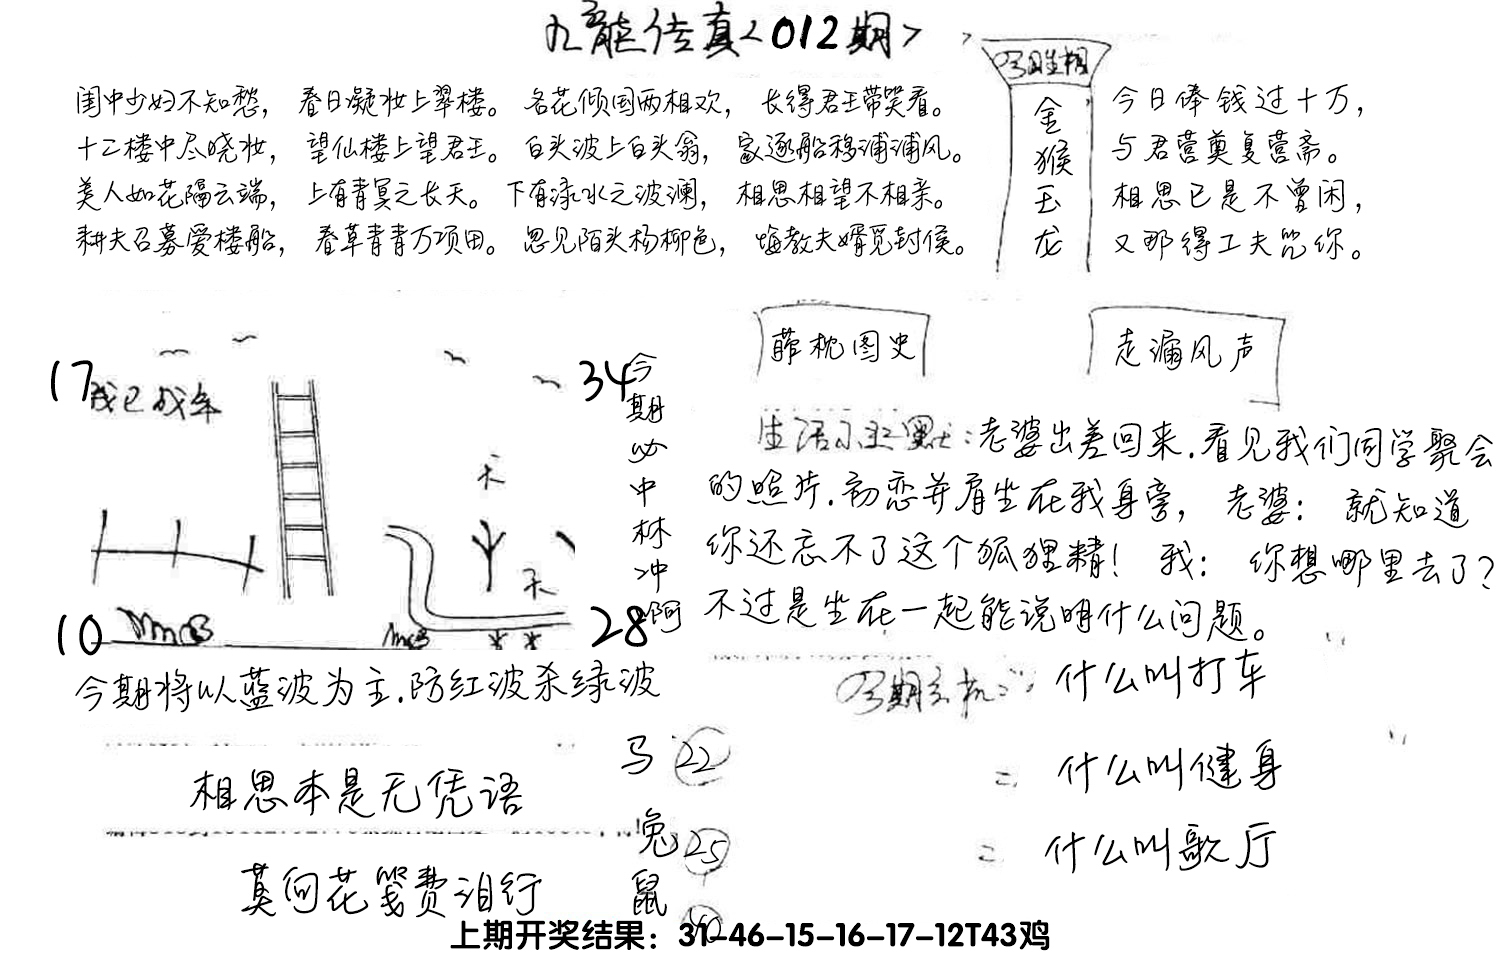 九龍传真<012期>
今日生相
金猴玉龙
闺中少妇不知愁，春日凝妆上翠楼。名花倾国两相欢，长得君王带笑看。
十二楼中尽晓妆，望仙楼上望君王。白头波上白头翁，家逐船移浦浦风。
美人如花隔云端，上有青冥之长天。下有渌水之波澜，相思相望不相亲。
耕夫召募爱楼船，春草青青万项田。忽见陌头杨柳色，悔教夫婿觅封侯。
今日俸钱过十万，
与君营奠复营斋。
相思已是不曾闲，
又那得工夫咒你。
17
34
10
28
天
天
今期必中林冲啊
今期将以蓝波为主.防红波杀绿波
相思本是无凭语
莫向花笺费泪行
马 22
兔 25
鼠
藉枕图史
走漏风声
生活小幽默:老婆出差回来.看见我们同学聚会
的照片.初恋并肩坐在我身旁，老婆：就知道
你还忘不了这个狐狸精！我：你想哪里去了？
不过是坐在一起能说明什么问题。
今期玄机:什么叫打车
= 什么叫健身
= 什么叫歌厅
上期开奖结果：31-46-15-16-17-12T43鸡